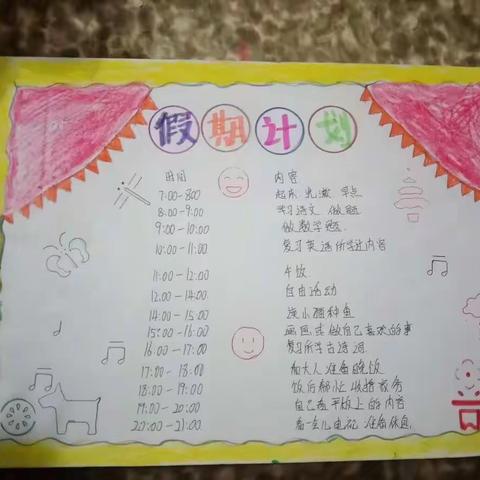 假期计划
时间 内容
7:00-8:00 起床 洗漱 早点
8:00-9:00 学习语文 做题
9:00-10:00 做数学题
10:00-11:00 复习英语所学过内容
11:00-12:00 午饭
12:00-14:00 自由活动
14:00-15:00 浇小猫种鱼
15:00-16:00 画画或做自己喜欢的事
16:00-17:00 复习所学古诗词
17:00-18:00 和大人准备晚饭
18:00-19:00 饭后帮忙收拾家务
19:00-20:00 自己看平板上的内容
20:00-21:00 看一会儿电视 准备休息